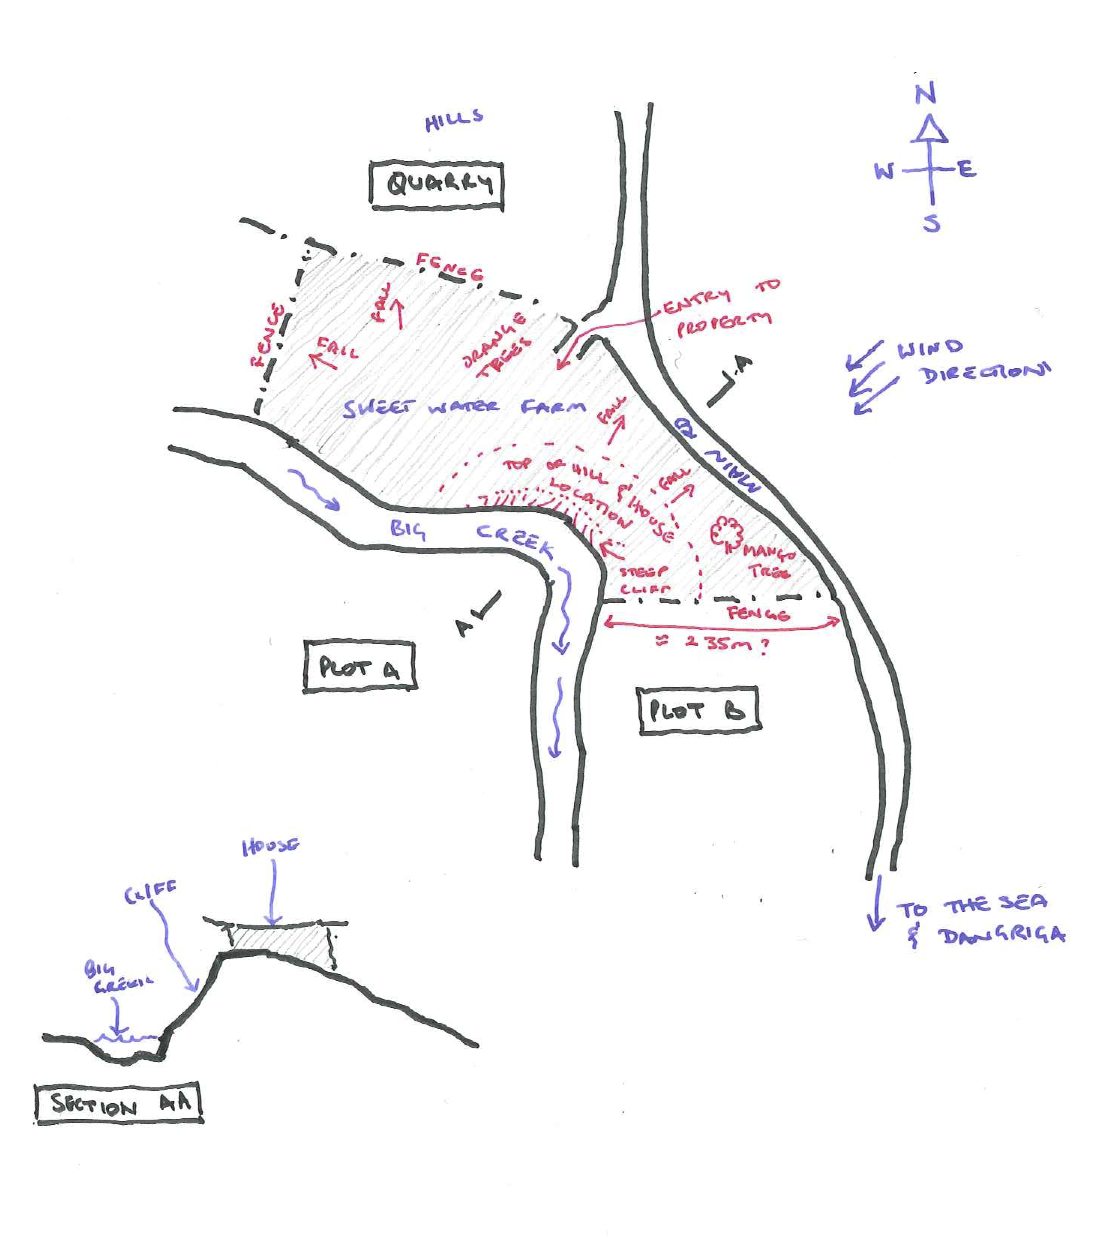 N
HILLS
W
E
QUARRY
S
FENCE
ENTRY TO
PROPERTY
FALL
FENCE
FALL
ORANGE
TREES
WIND
DIRECTION
A
SWEET WATER FARM
FALL
MAIN RD
TOP OF HILL & HOUSE
LOCATION
FALL
BIG CREEK
MANGO
TREE
STEEP
CLIFF
FENCE
A
≈ 235m?
PLOT A
PLOT B
HOUSE
CLIFF
TO THE SEA
& DANGRIGA
BIG
CREEK
SECTION AA